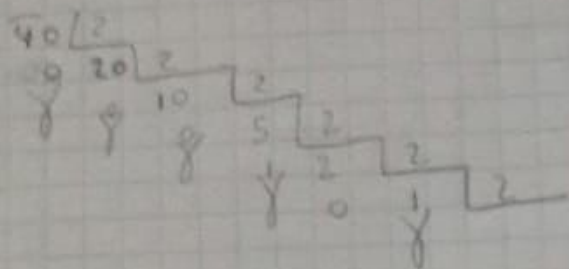 40 2
0 20 2
10 2
5 2
1 2 2
0 1 2